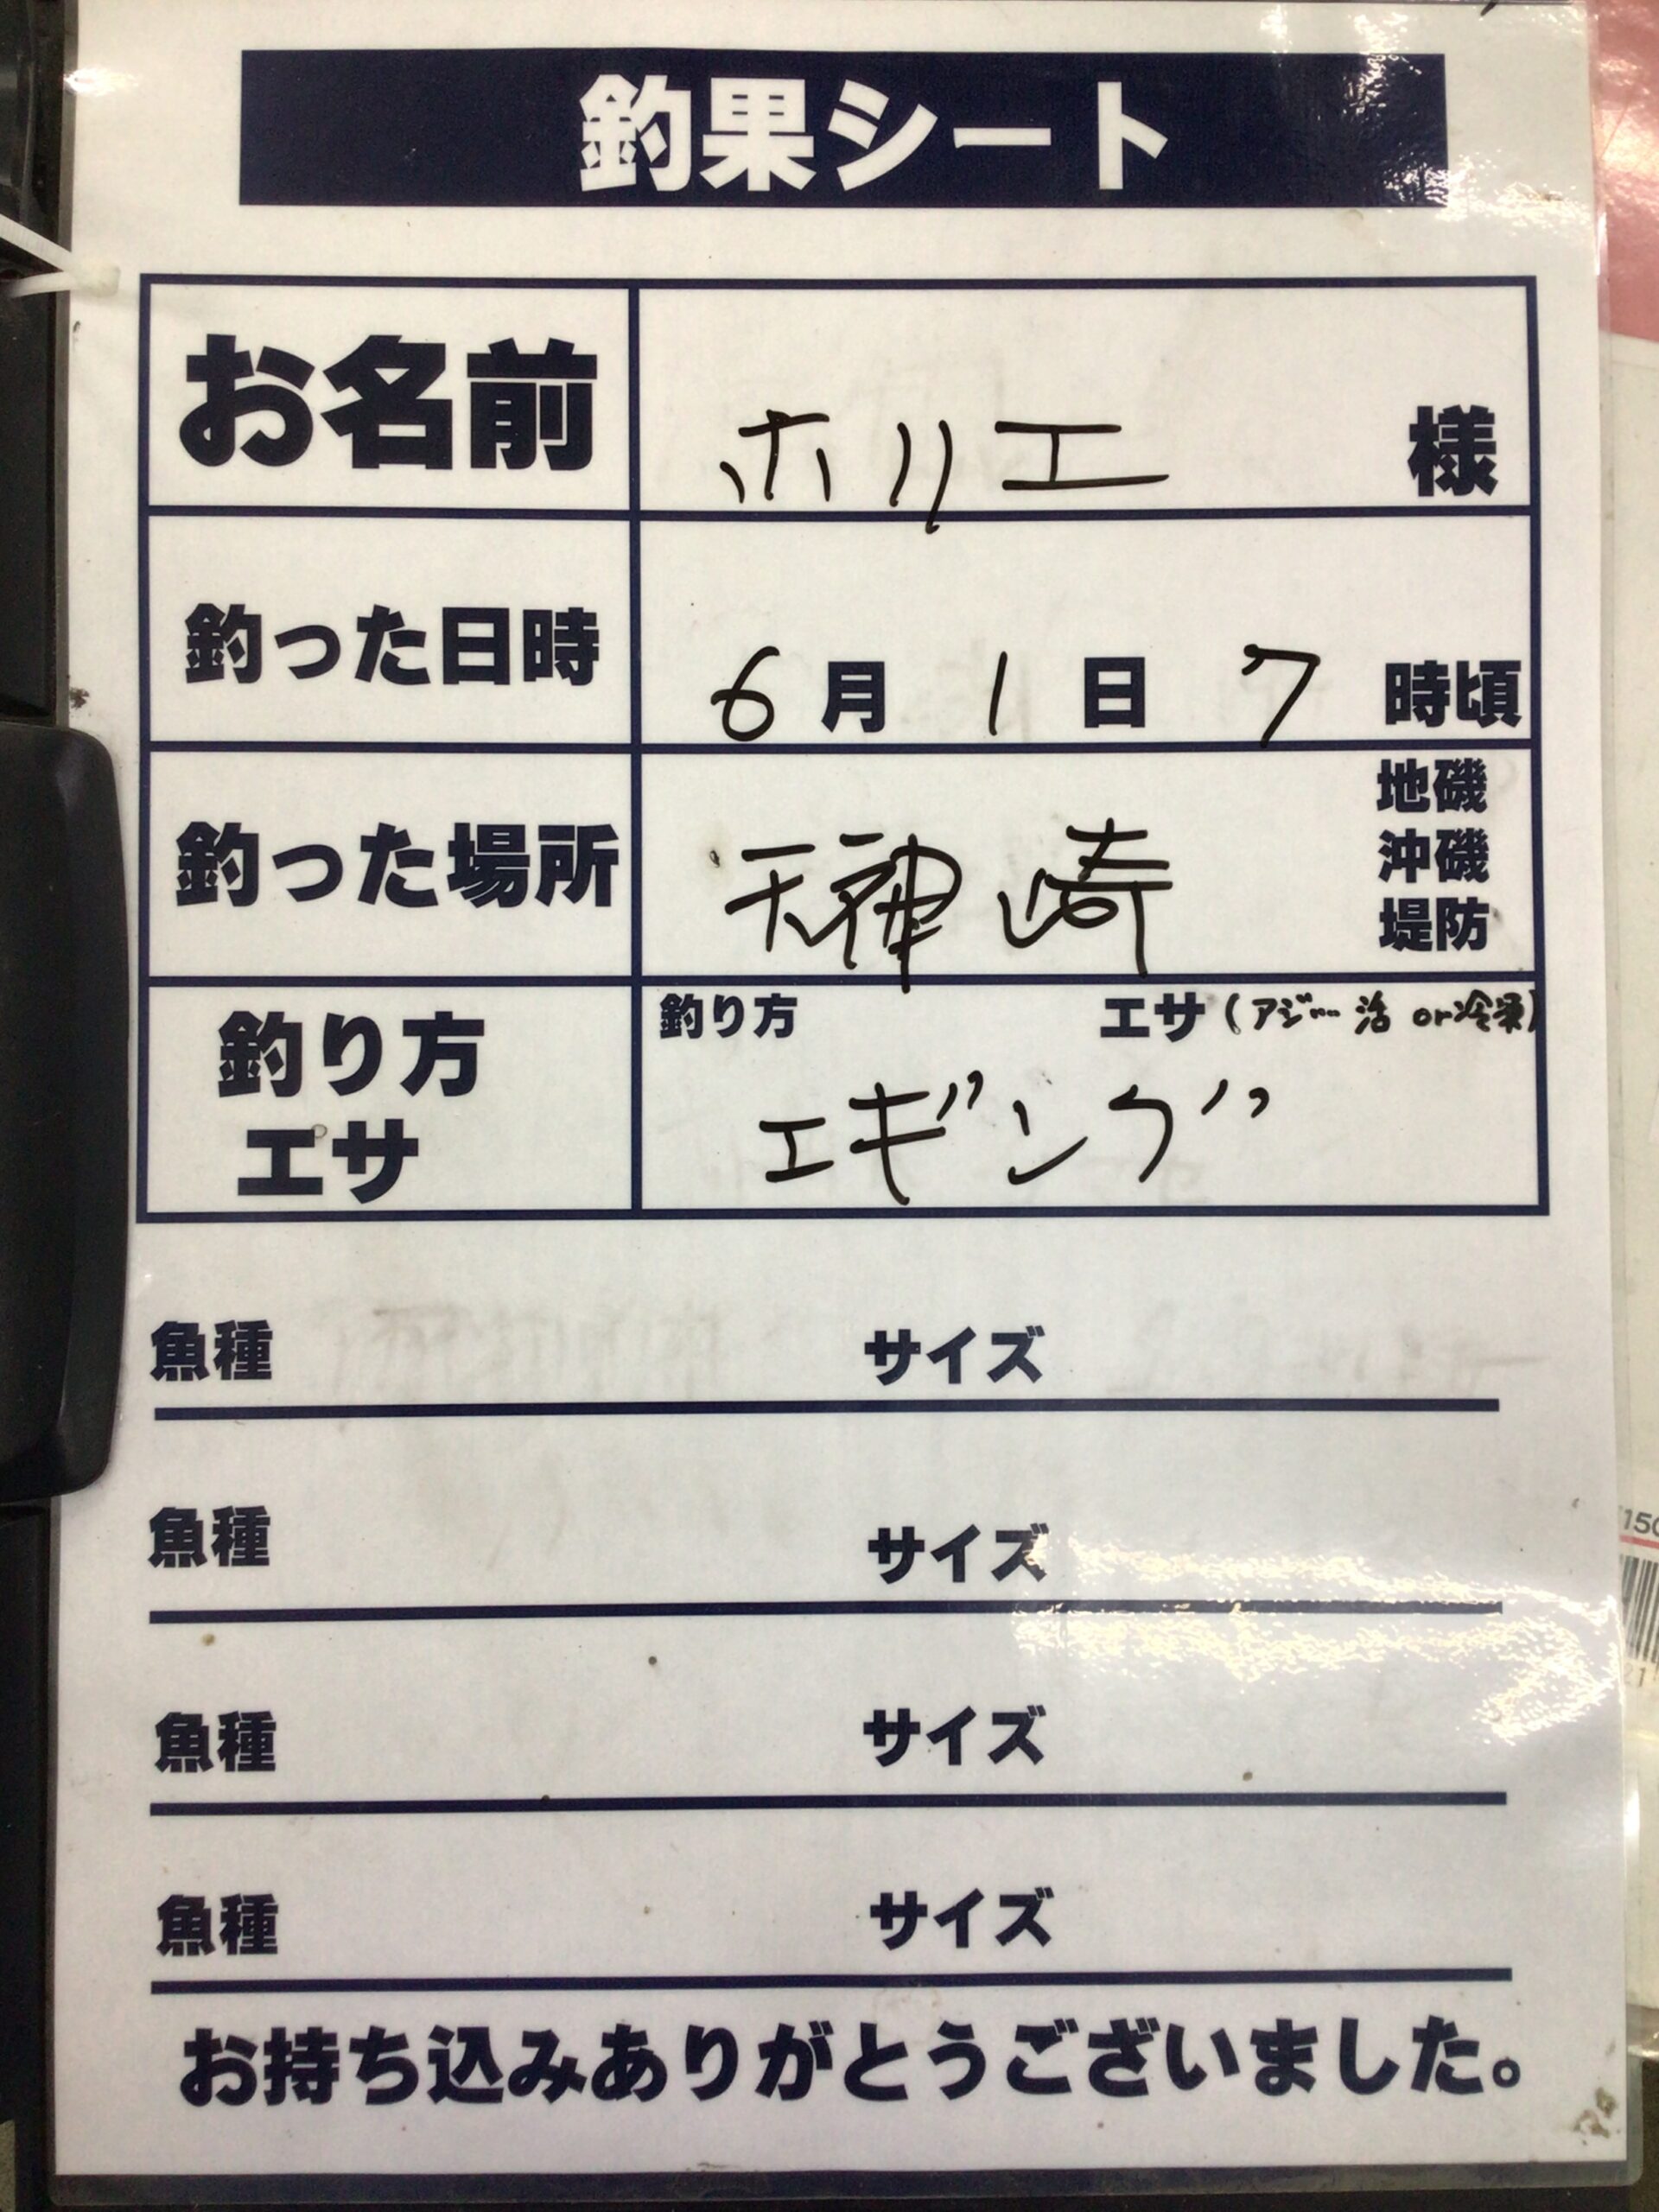 釣果シート
お名前 ホリエ 様
釣った日時 6月1日7時頃
釣った場所 天神崎 地磯
沖磯
堤防
釣り方 エサ
釣り方 エサ (アジ… 活 or 冷凍)
エギング
魚種 サイズ
魚種 サイズ
魚種 サイズ
魚種 サイズ
お持ち込みありがとうございました。